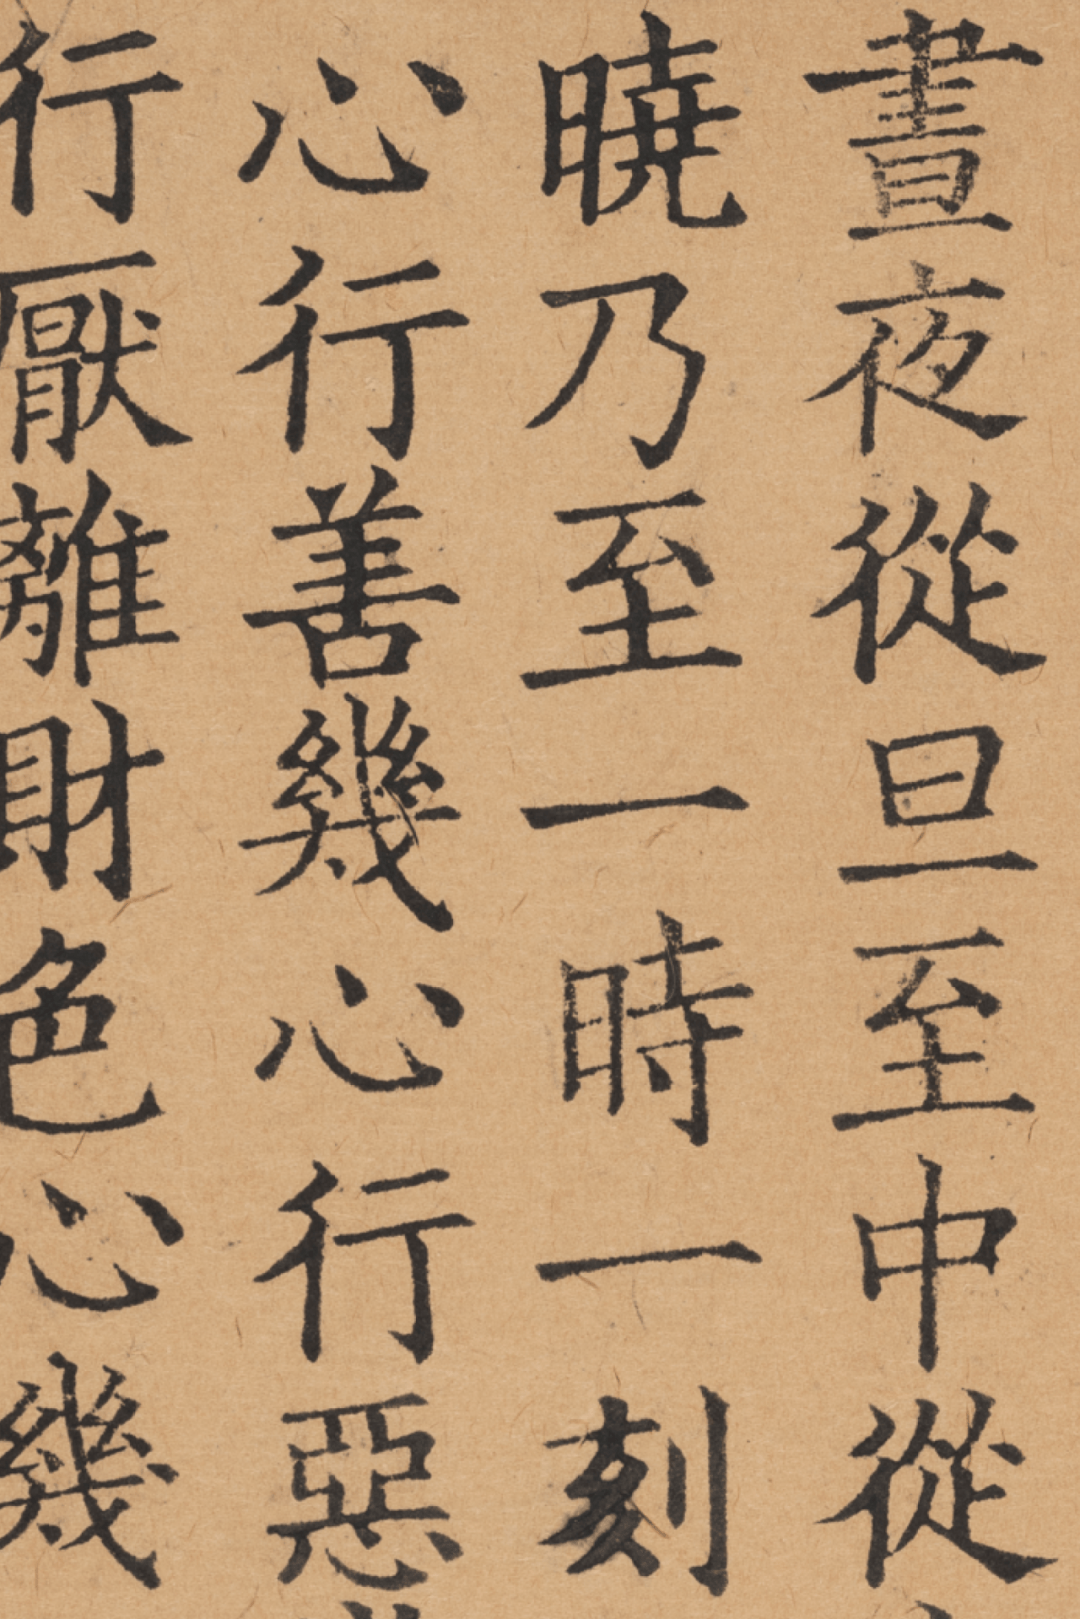 晝夜從旦至中從
曉乃至一時一刻
心行善幾心行惡
行厭離財色心幾